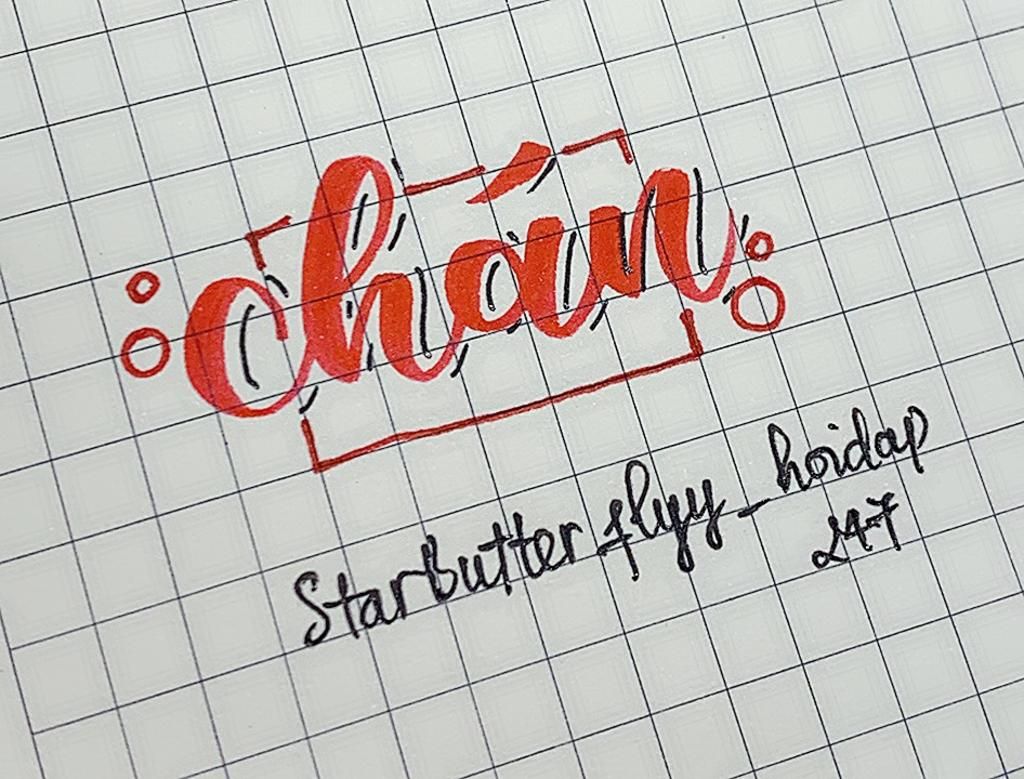 chán
Starbutterflyy_hoidap
247